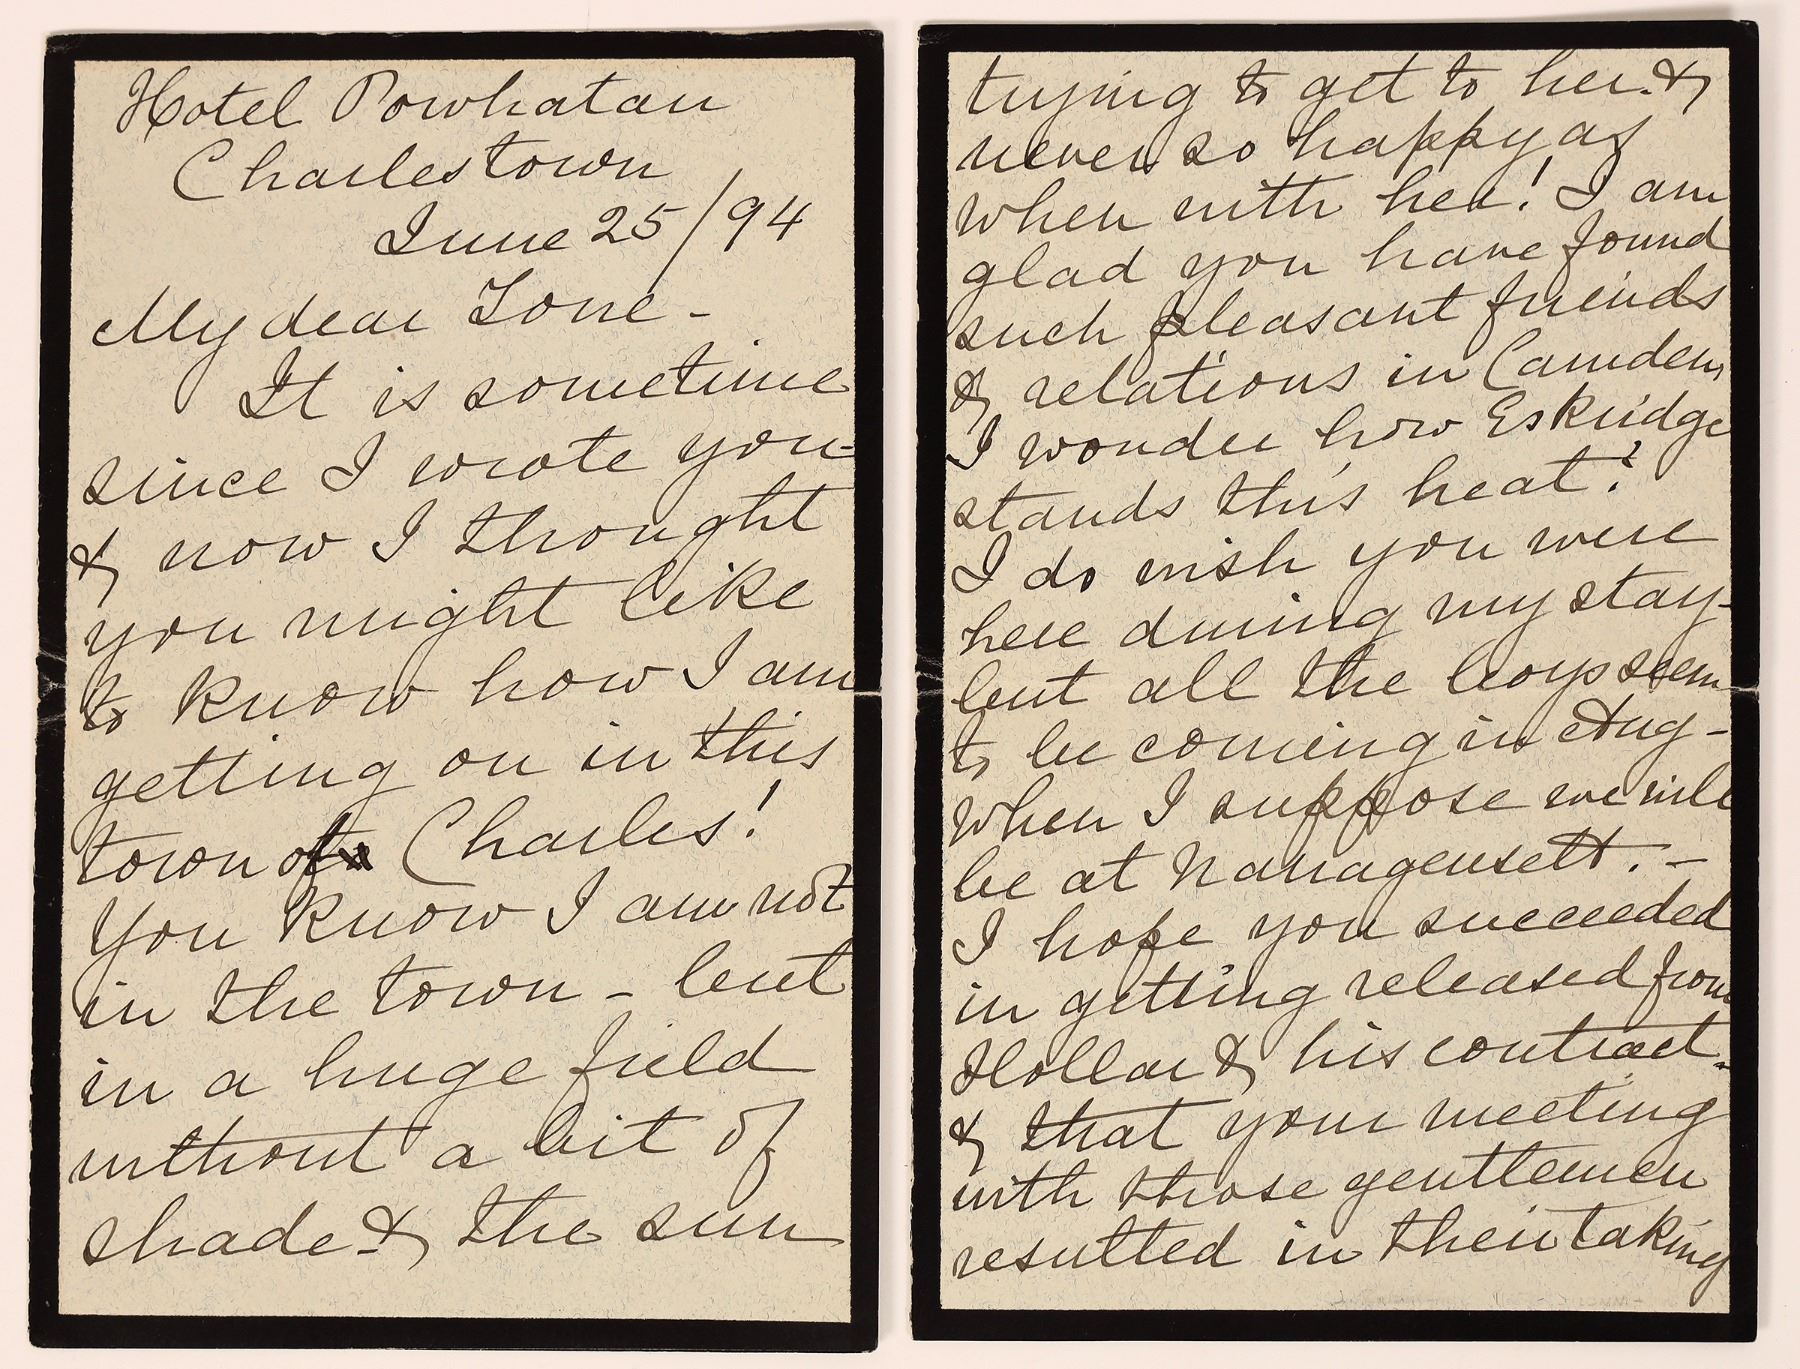 Hotel Powhatan
Charlestown
June 25/94
My dear Lone -
It is sometime
since I wrote you -
& now I thought
you might like
to know how I am
getting on in this
town of Charles!
You know I am not
in the town - but
in a huge field
without a bit of
shade & the sun
trying to get to her &
never so happy as
when with her! I am
glad you have found
such pleasant friends
& relations in Camden,
I wonder how Eskridge
stands this heat?
I do wish you were
here during my stay -
but all the boys seem
to be coming in Aug -
when I suppose we will
be at Narragensett. -
I hope you succeeded
in getting released from
Hollar & his contract -
& that your meeting
with those gentlemen
resulted in their taking